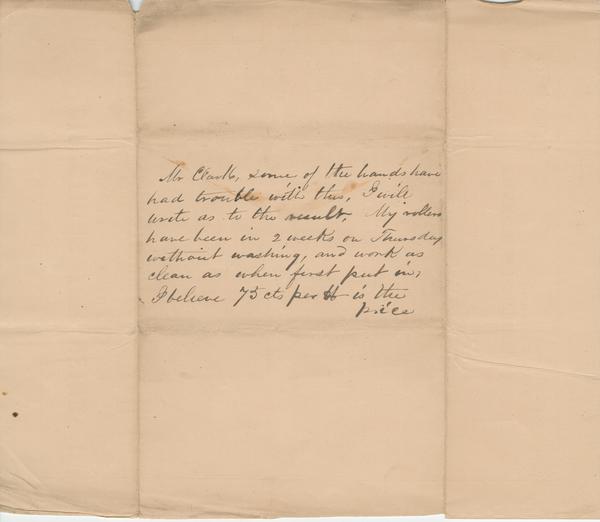 Mr Clark, some of the hands have
had trouble with this, I will
write as to the result. My rollers
have been in 2 weeks on Thursday
without washing, and work as
clean as when first put in,
I believe 75 cts per lb is the
price